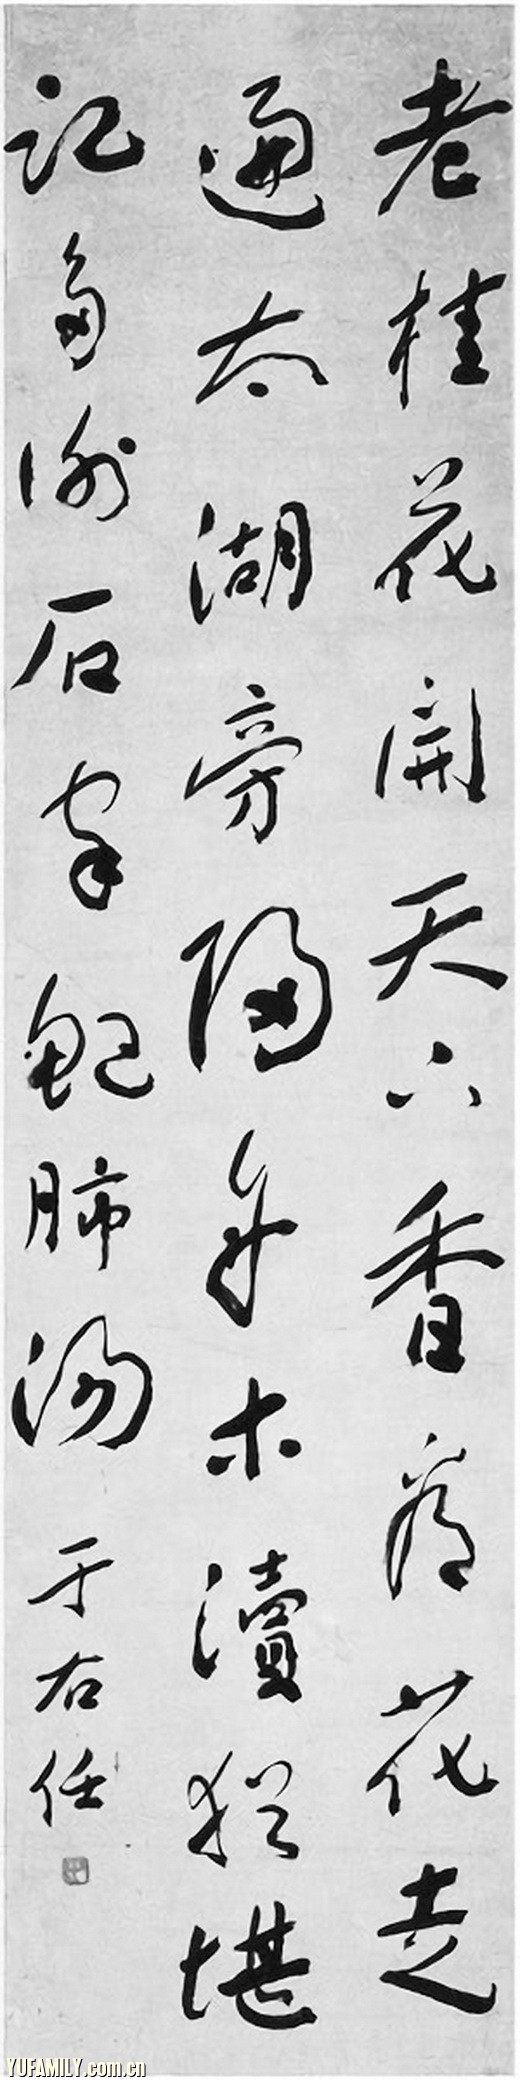 老桂花開天下香看花走
遍太湖旁歸舟木瀆猶堪
記多謝石家鲃肺湯
于右任
YUFAMILY.com.cn